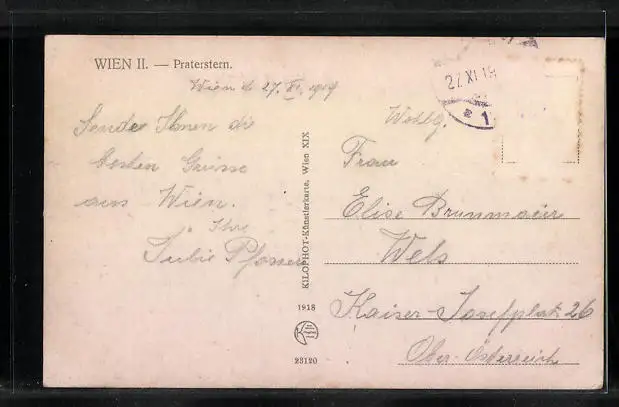 WIEN II. — Praterstern.
Wien d. 27. XI. 1919
Sende Ihnen die
besten Grüsse
aus Wien.
Ihre
Julie
KILOPHOT-Künstlerkarte, Wien XIX
1918
23120
27 XI 19
* 1
Wohlg.
Frau
Elise Brunmaier
Wels
Kaiser-Josefplatz 26
Ober-Österreich